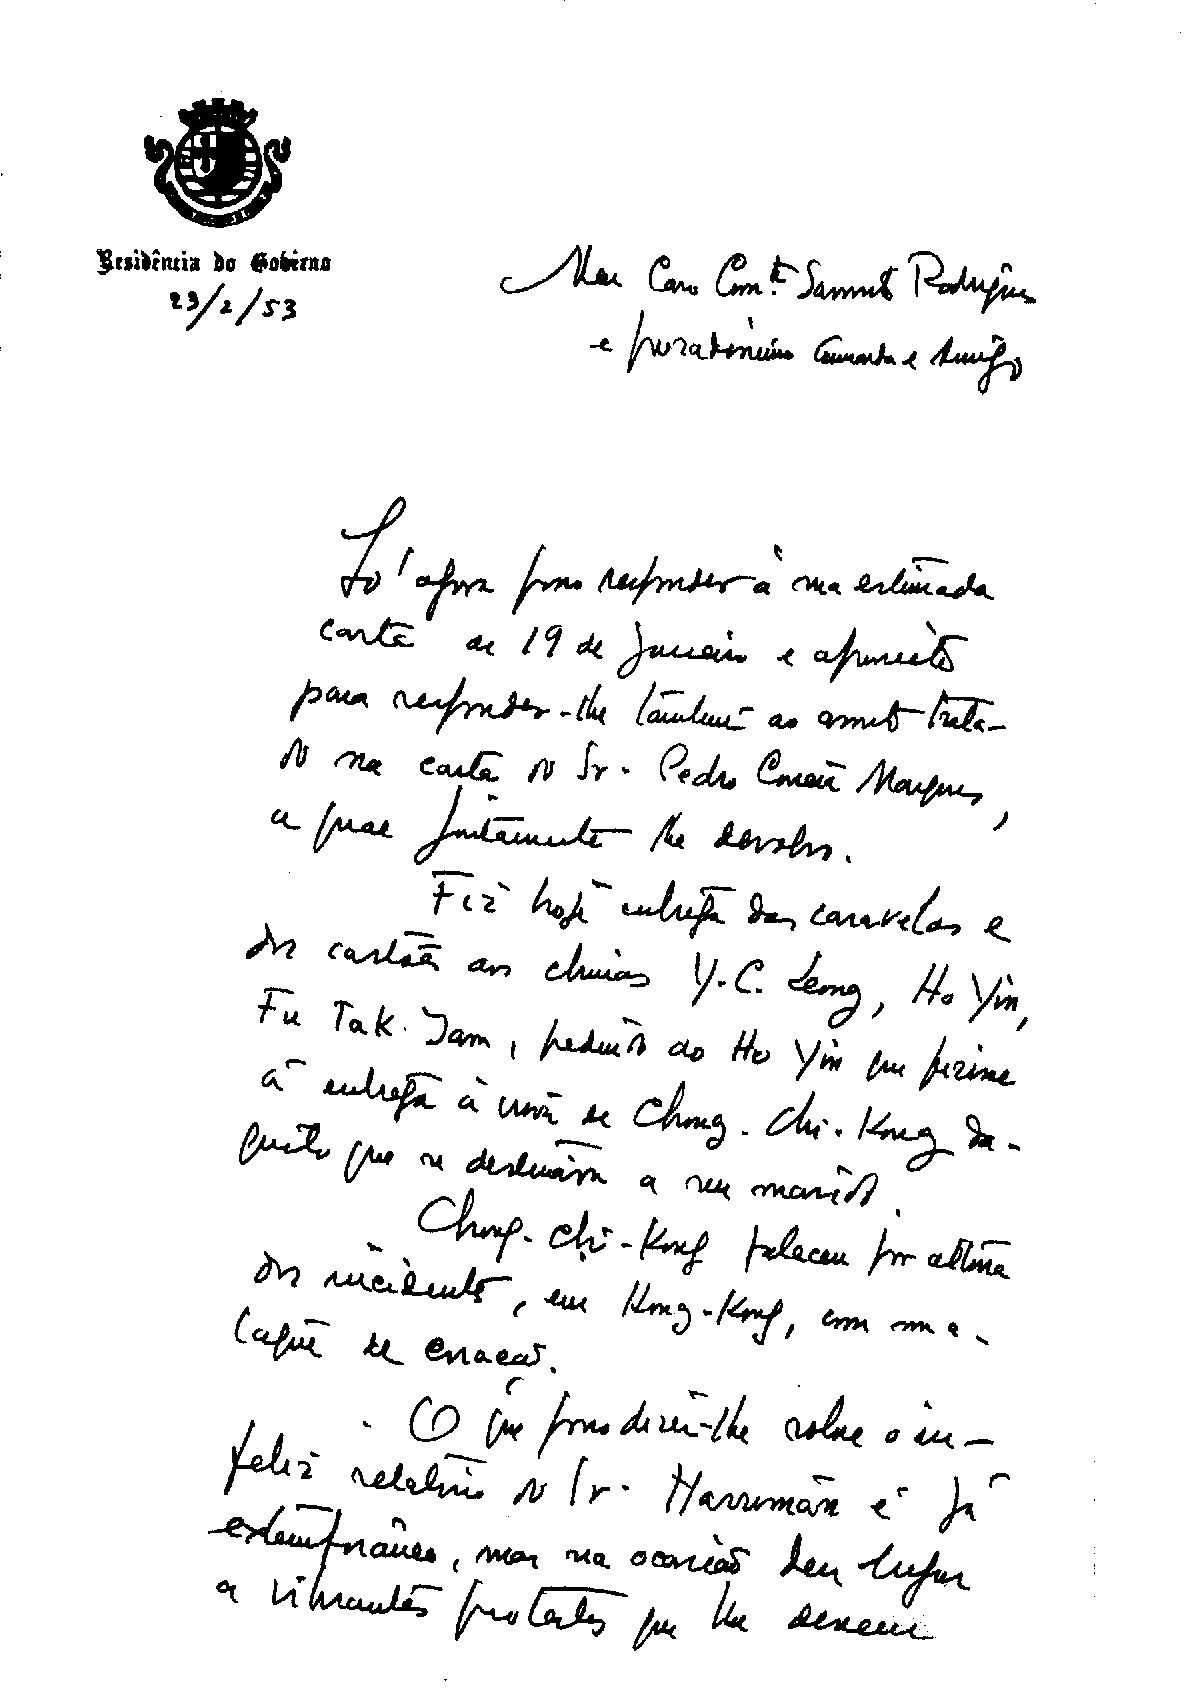 Residência do Govêrno
23/2/53
Meu Caro Com.te Sarmento Rodrigues
e prezadíssimo Camarada e Amigo
Só agora posso responder à sua estimada
carta de 19 de Janeiro e aproveito
para responder-lhe também ao assunto trata-
do na carta do Sr. Pedro Correia Marques,
a qual juntamente lhe devolvo.
Fiz hoje entrega das caravelas e
dos cartões aos chinas Y.C. Leong, Ho Yin,
Fu Tak Iam, pedindo ao Ho Yin que fizesse
a entrega à viúva de Chong-Chi-Kong da-
quilo que se destinava a seu marido.
Chong-Chi-Kong faleceu por altura
dos incidentes, em Hong-Kong, com um a-
taque de coração.
O que posso dizer-lhe sobre o in-
feliz relatório do Sr. Harriman é já
extemporâneo, mas na ocasião deu lugar
a vibrantes protestos que lhe devem